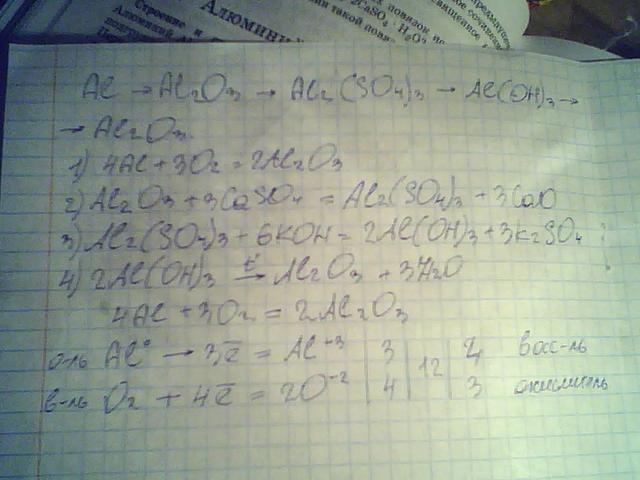 Алюмини
Строение и
Алюминий
2CaSO4 · H2O
Al → Al2O3 → Al2(SO4)3 → Al(OH)3 →
→ Al2O3.
1) 4Al + 3O2 = 2Al2O3
2) Al2O3 + 3CaSO4 = Al2(SO4)3 + 3CaO
3) Al2(SO4)3 + 6KOH = 2Al(OH)3 + 3K2SO4
4) 2Al(OH)3 t° → Al2O3 + 3H2O
4Al + 3O2 = 2Al2O3
о-ль Al° → 3ē = Al+3 | 3 | 12 | 4 восс-ль
в-ль O2 + 4ē = 2O-2 | 4 | | 3 окислитель